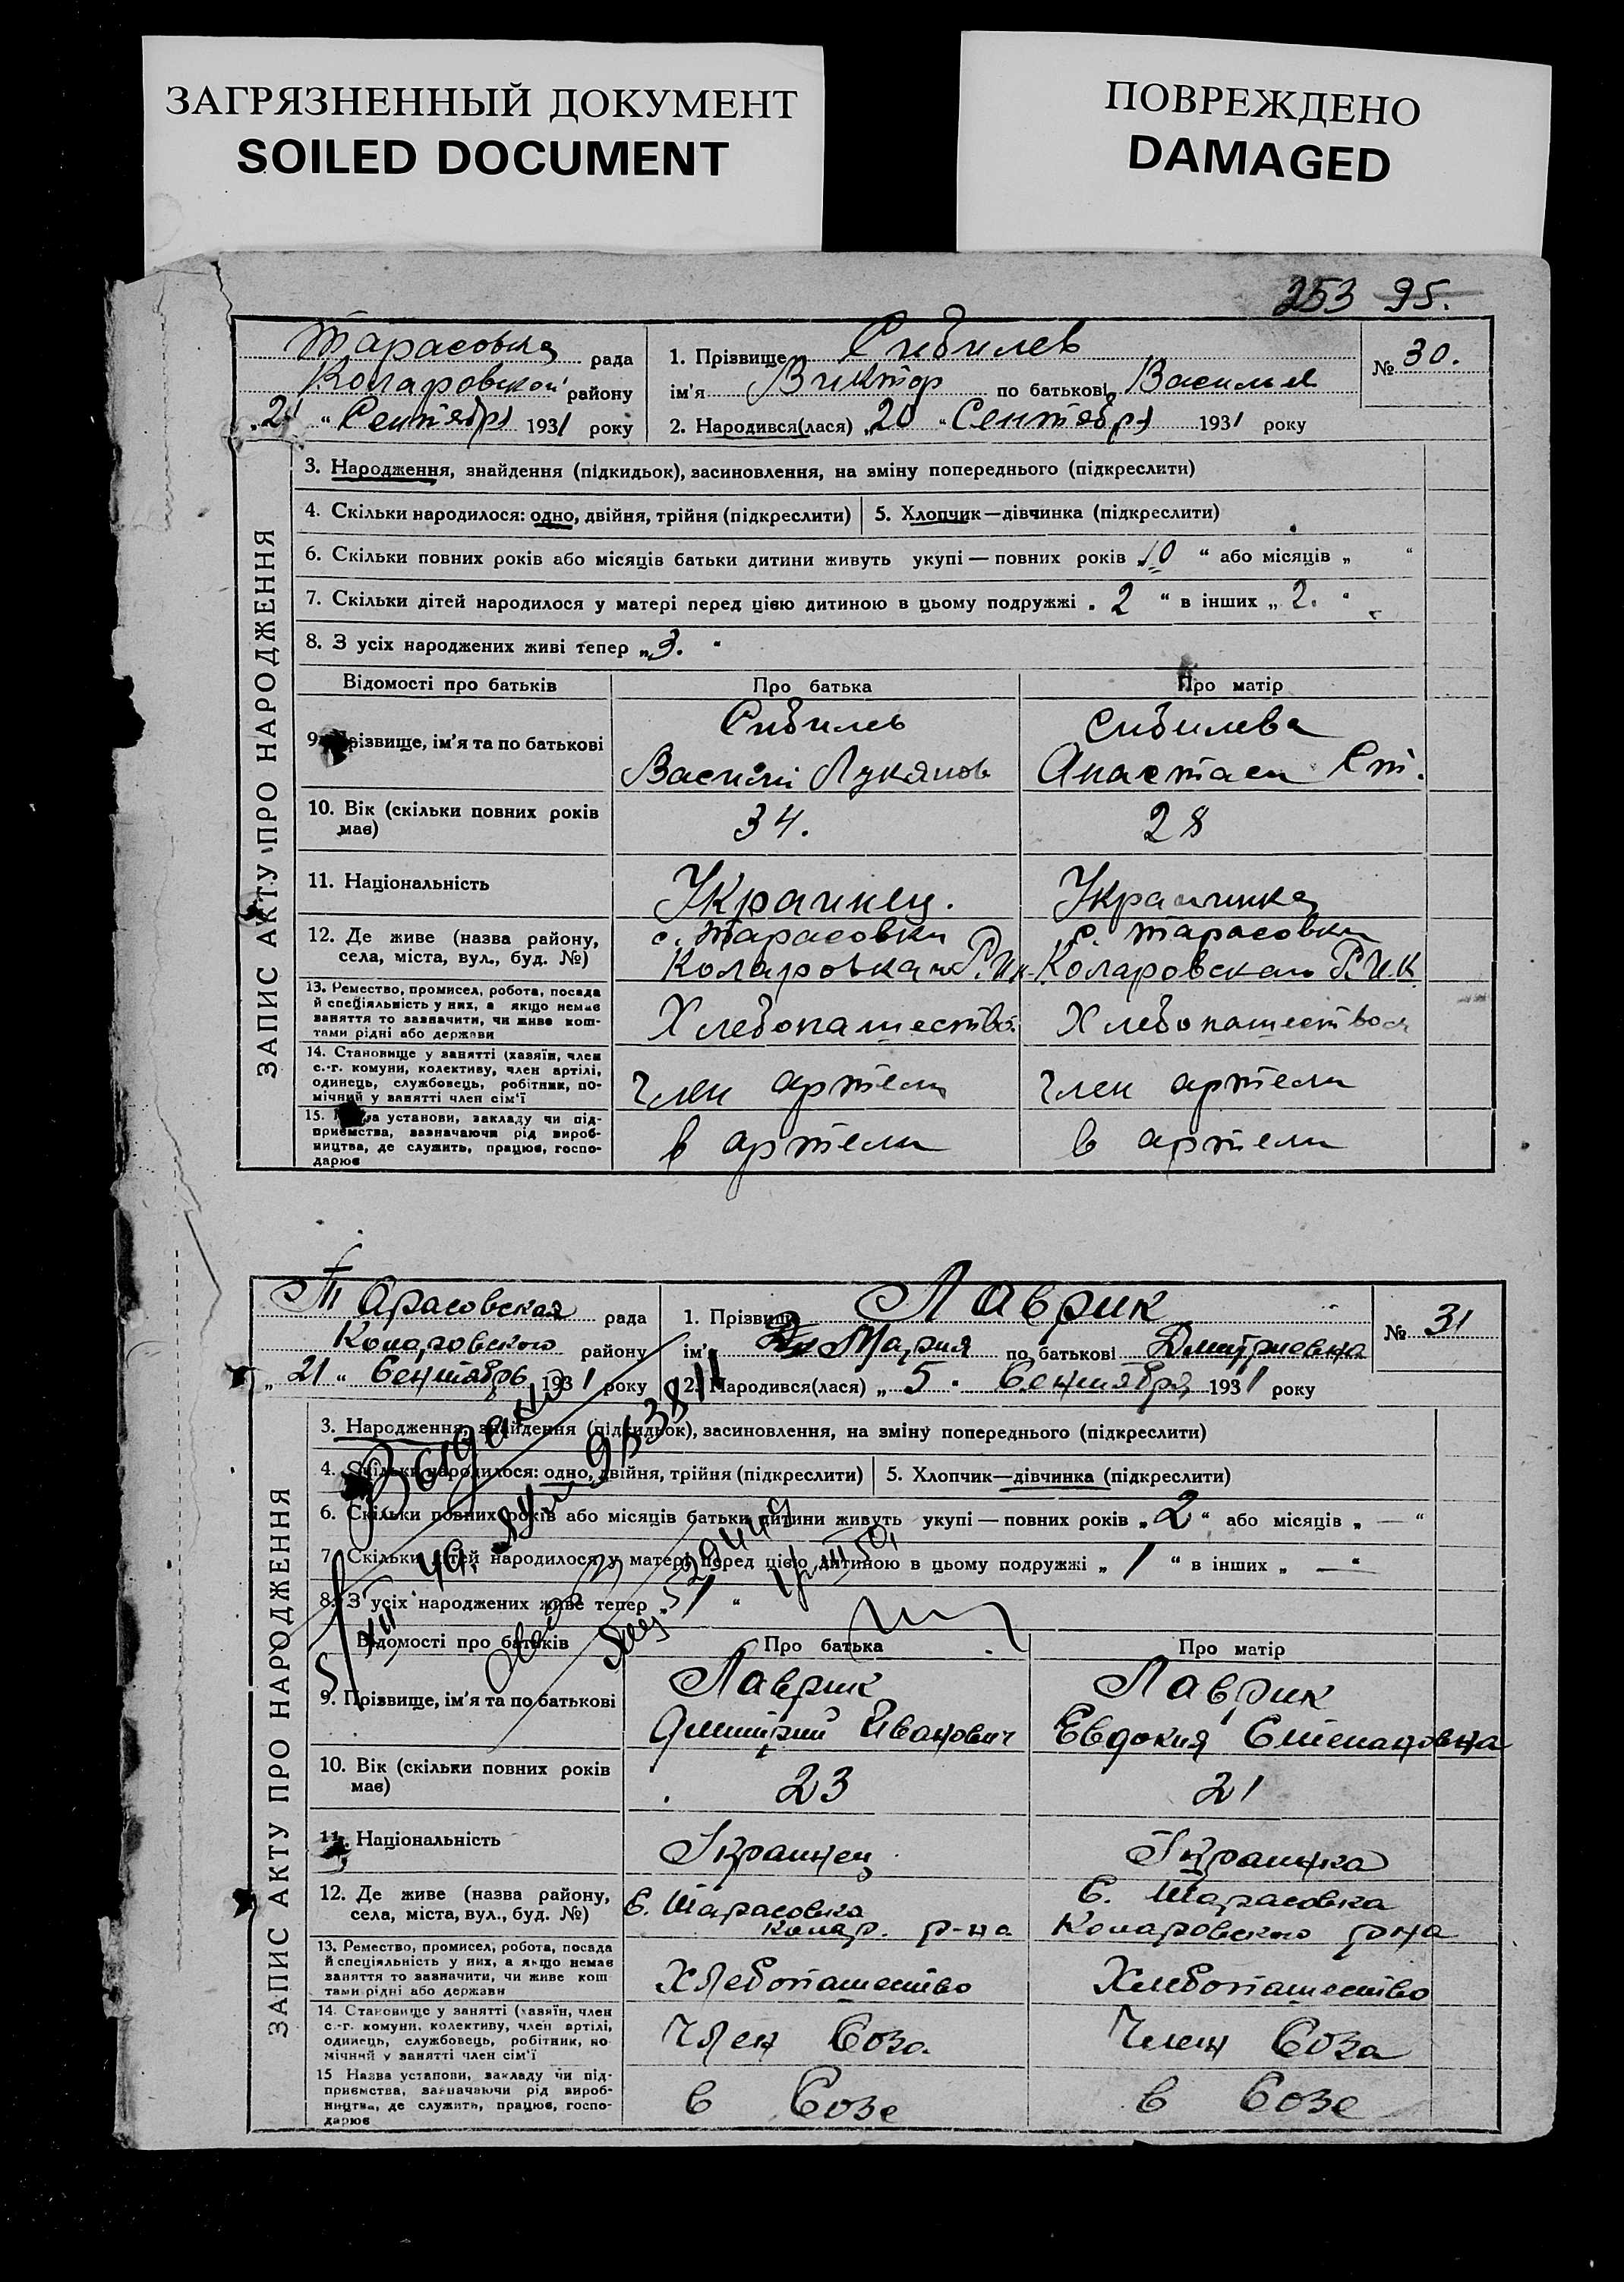 ЗАГРЯЗНЕННЫЙ ДОКУМЕНТ
SOILED DOCUMENT
ПОВРЕЖДЕНО
DAMAGED
253 95.
рада
Коларовской району
„21“ Сентября 1931 року
1. Прізвище Сибилев
ім'я Виктор по батькові Василье
2. Народився(лася) „20“ Сентября 1931 року
№ 30.
ЗАПИС АКТУ ПРО НАРОДЖЕННЯ
3. Народження, знайдення (підкидьок), засиновлення, на зміну попереднього (підкреслити)
4. Скільки народилося: одно, двійня, трійня (підкреслити)
5. Хлопчик—дівчинка (підкреслити)
6. Скільки повних років або місяців батьки дитини живуть укупі — повних років „10“ або місяців „ “
7. Скільки дітей народилося у матері перед цією дитиною в цьому подружжі „2“ в інших „2.“
8. З усіх народжених живі тепер „3.“
Відомості про батьків
Про батька
Про матір
9. Прізвище, ім'я та по батькові
Сибилев
Василий Лукянов
Сибилева
Анастаси Ст.
10. Вік (скільки повних років
має)
34.
28
11. Національність
Украинец.
Украиинка
12. Де живе (назва району,
села, міста, вул., буд. №)
с. Тарасовки
Р.И.К.
с. Тарасовки
Коларовскаго Р.И.К.
13. Ремество, промисел, робота, посада
й спеціяльність у них, а якщо немає
заняття то зазначити, чи живе кош-
тами рідні або держави
Хлебопашество
Хлебопашество
14. Становище у занятті (хазяїн, член
с.-г. комуни, колективу, член артілі,
одинець, службовець, робітник, по-
мічний у занятті член сім'ї
Член артели
Член артели
15. Назва установи, закладу чи під-
приємства, зазначаючи рід вироб-
ництва, де служить, працює, госпо-
дарює
в артели
в артели
Тарасовская рада
Коларовского району
„21“ Сентября 1931 року
1. Прізвище Лаврик
ім'я Мария по батькові Дмитриевна
2. Народився(лася) „5“ Сентября 1931 року
№ 31
ЗАПИС АКТУ ПРО НАРОДЖЕННЯ
3. Народження, знайдення (підкидьок), засиновлення, на зміну попереднього (підкреслити)
4. Скільки народилося: одно, двійня, трійня (підкреслити)
5. Хлопчик—дівчинка (підкреслити)
6. Скільки повних років або місяців батьки дитини живуть укупі — повних років „2“ або місяців „—“
7. Скільки дітей народилося у матері перед цією дитиною в цьому подружжі „1“ в інших „—“
8. З усіх народжених живе тепер „1“
Відомості про батьків
Про батька
Про матір
9. Прізвище, ім'я та по батькові
Лаврик
Дмитрий Иванович
Лаврик
Евдокия Степановна
10. Вік (скільки повних років
має)
23
21
11. Національність
Украинец
Украинка
12. Де живе (назва району,
села, міста, вул., буд. №)
С. Тарасовка
Колар. р-на
С. Тарасовка
Коларовского р-на
13. Ремество, промисел, робота, посада
й спеціяльність у них, а якщо немає
заняття то зазначити, чи живе кош
тами рідні або держави
Хлебопашество
Хлебопашество
14. Становище у занятті (хазяїн, член
с.-г. комуни, колективу, член артілі,
одинець, службовець, робітник, по
мічний у занятті член сім'ї
Член Соза
Член Соза
15 Назва установи, закладу чи під-
приємства, зазначаючи рід вироб-
ництва, де служить, працює, госпо-
дарює
в Созе
в Созе